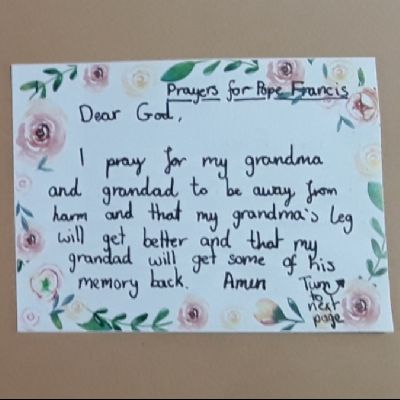 Prayers for Pope Francis
Dear God,
I pray for my grandma
and grandad to be away from
harm and that my grandma's leg
will get better and that my
grandad will get some of his
memory back. Amen
Turn
to
next
page